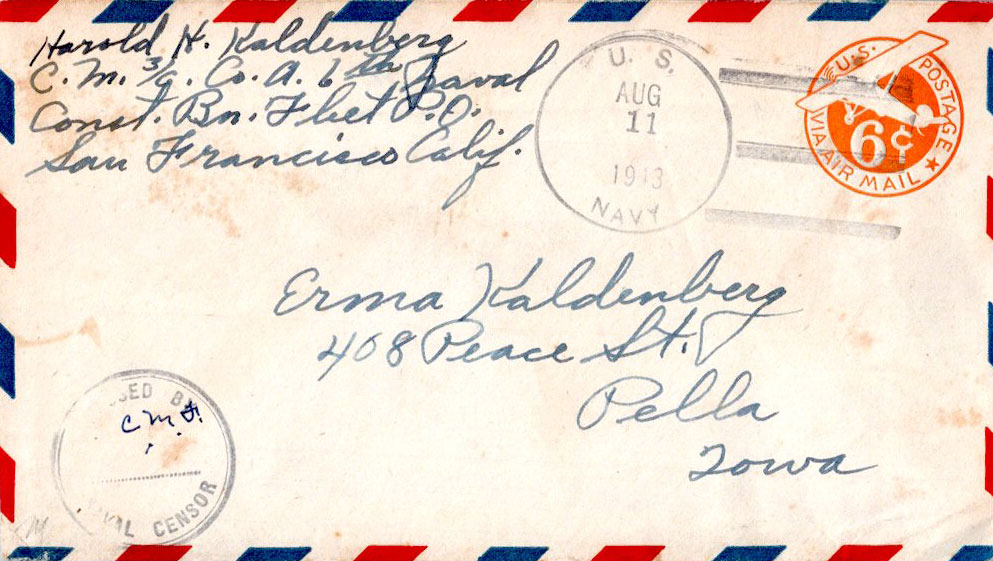 Harold H. Kaldenberg
C.M. 3/c. Co. A. 6th Naval
Const. Bn. Fleet P.O.
San Francisco Calif.
U. S.
AUG
11
1943
NAVY
U.S. POSTAGE
6¢
VIA AIR MAIL
Erma Kaldenberg
408 Peace St.
Pella
Iowa
SED BY
C.M.F.
VAL CENSOR